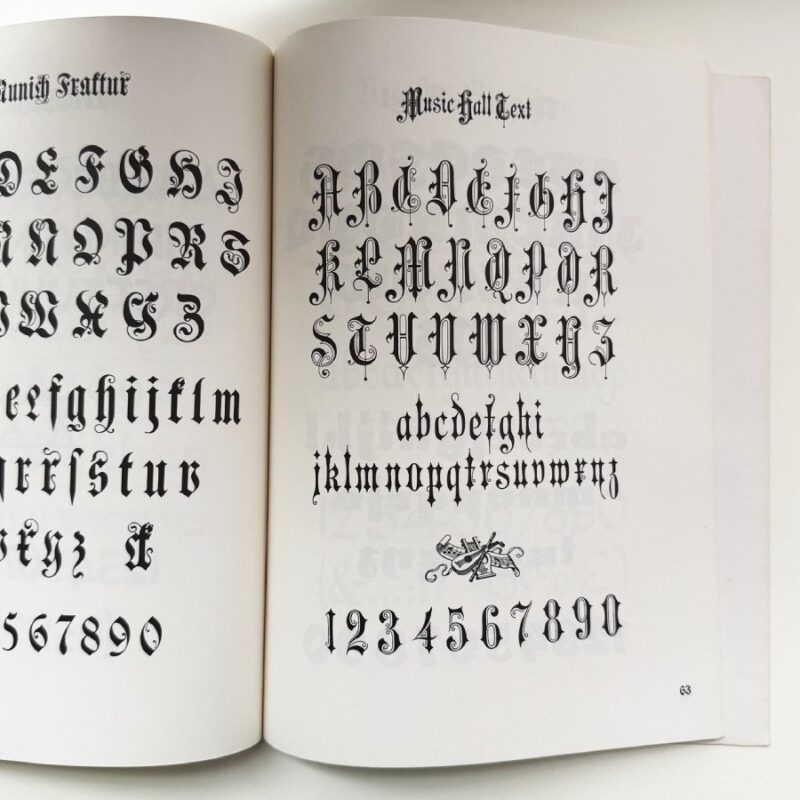 Munich Fraktur
D E F G H I
M N O P R S
V W X Y Z
e f g h i j k l m
q r r ſ s t u v
w x y z ck
5 6 7 8 9 0
Music Hall Text
A B C D E F G H I
K L M N O P Q R
S T U V W X Y Z
a b c d e f g h i
j k l m n o p q r s u v w x y z
1 2 3 4 5 6 7 8 9 0
63